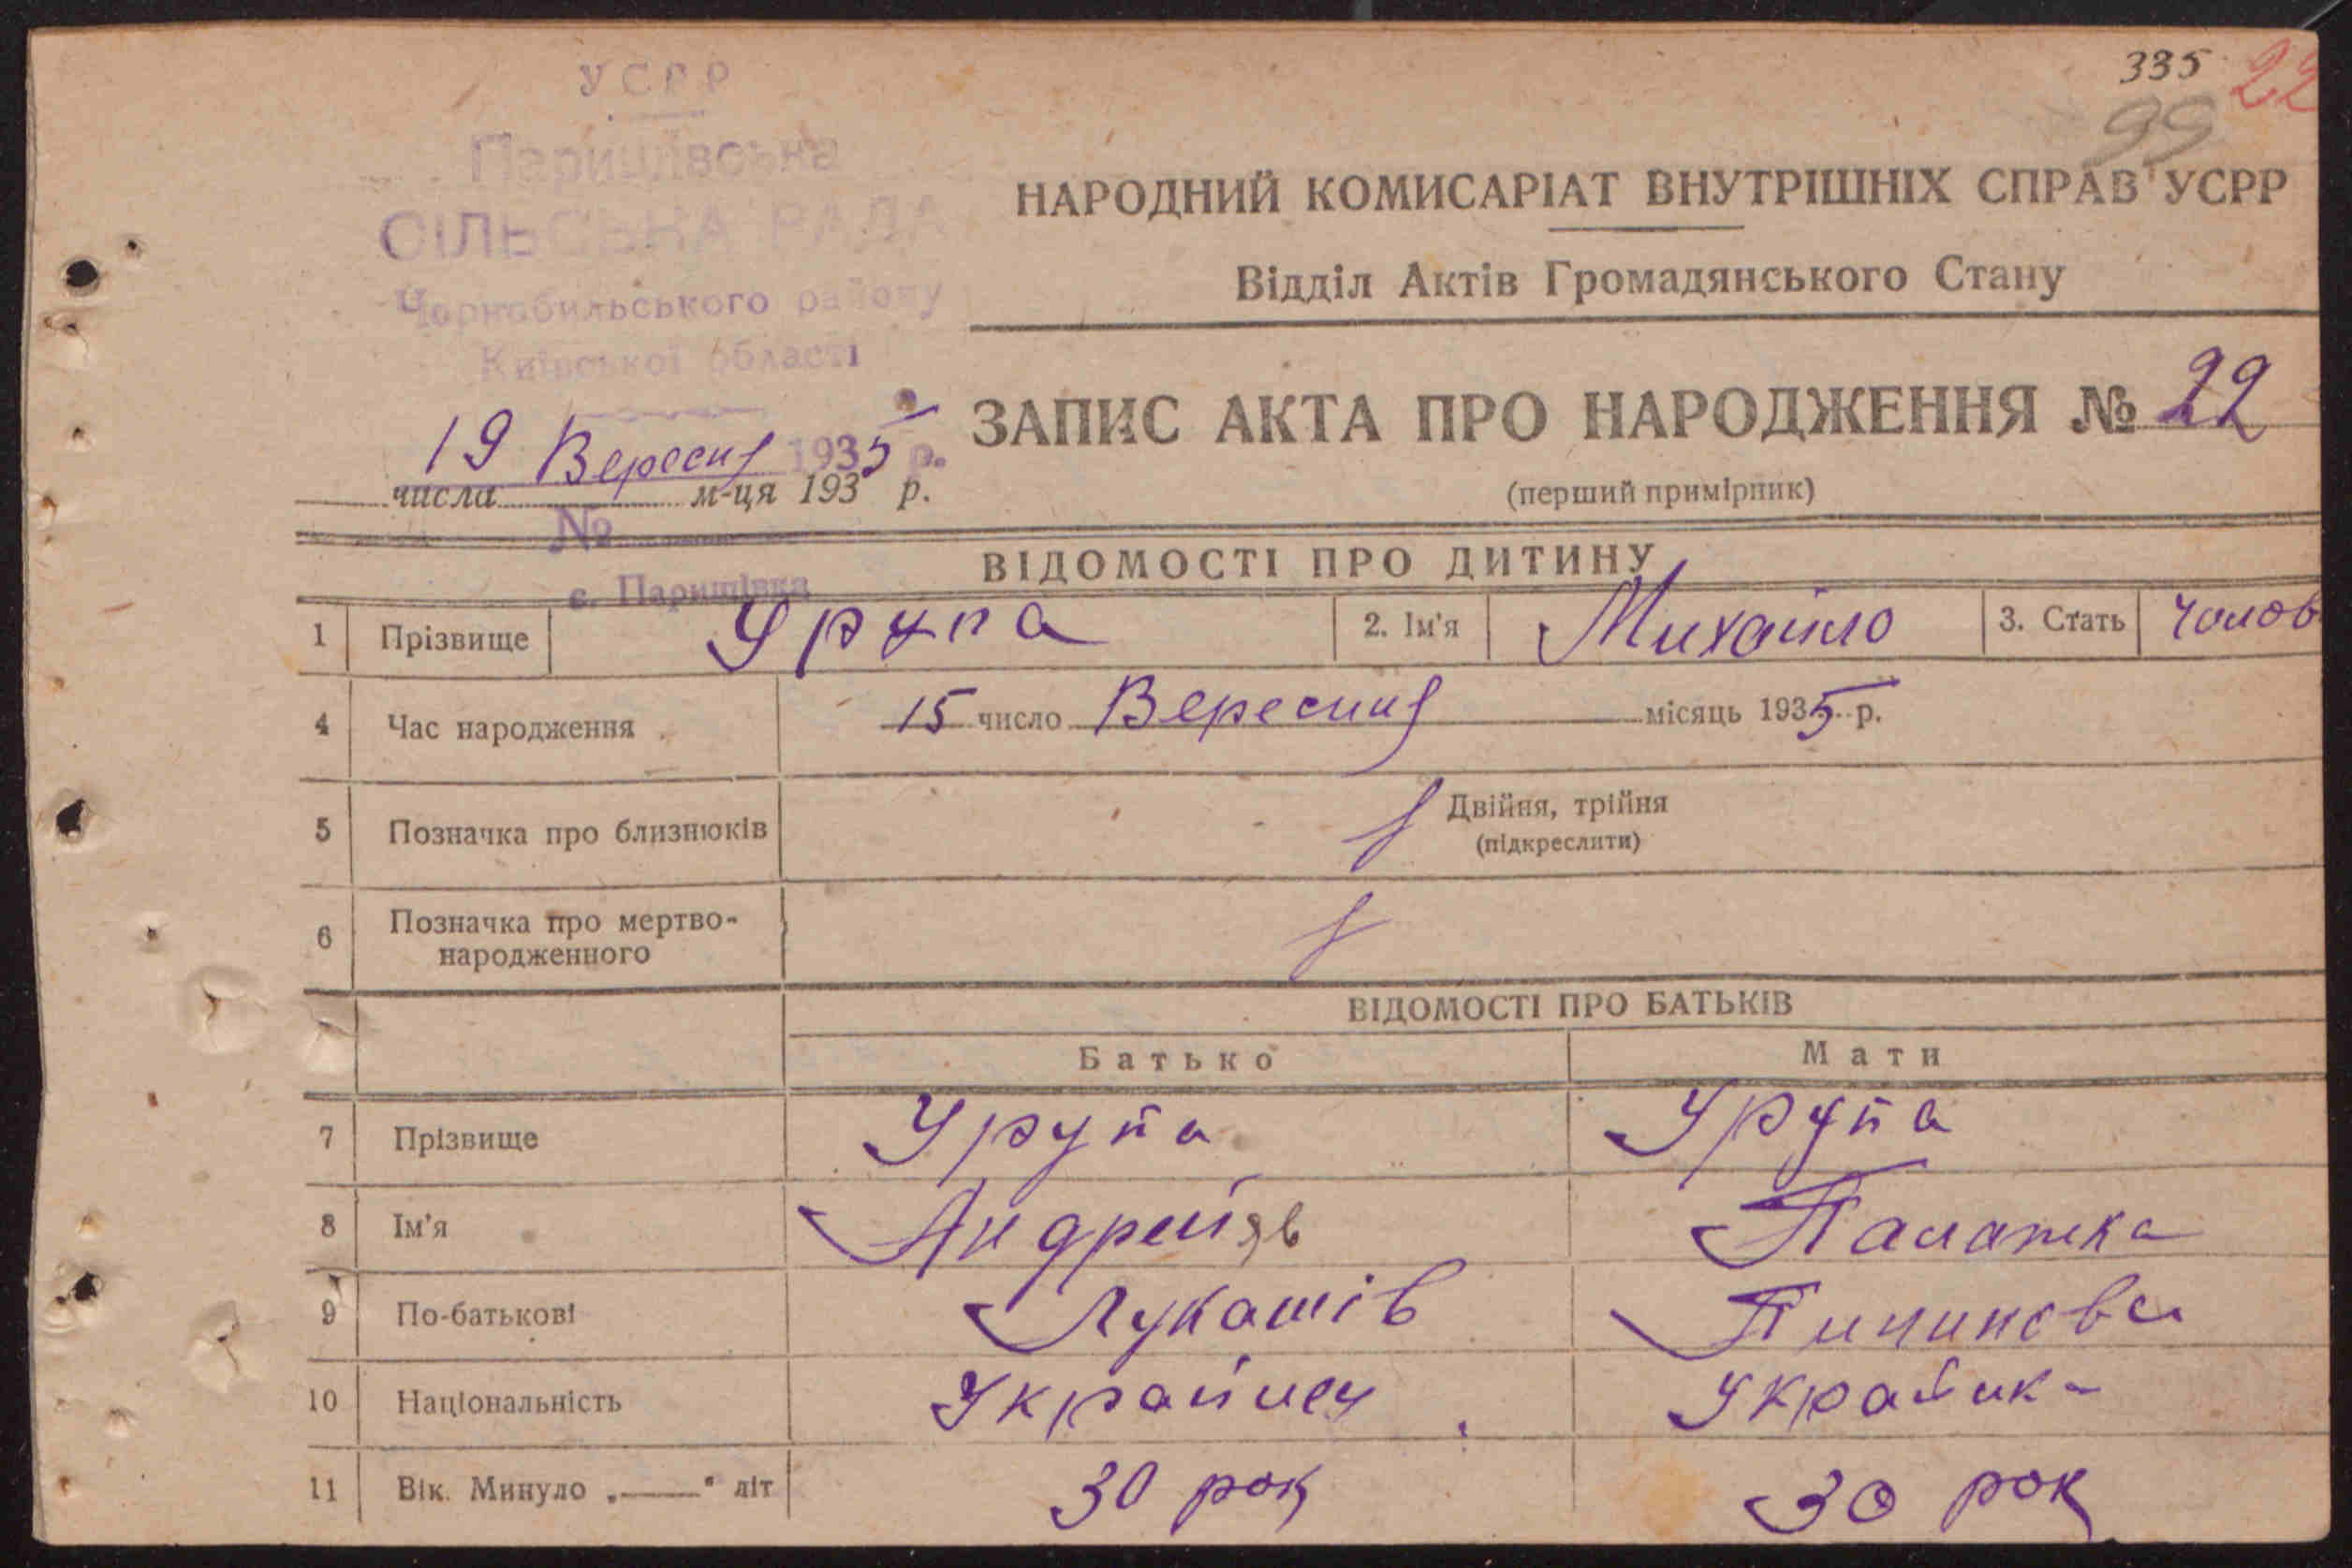 335 22
99
УСРР
Паришівська
СІЛЬСЬКА РАДА
Чорнобильського району
Київської області
19 Вересня 1935 р.
числа м-ця 193 р.
№
с. Паришівка
НАРОДНИЙ КОМИСАРІАТ ВНУТРІШНІХ СПРАВ УСРР
Відділ Актів Громадянського Стану
ЗАПИС АКТА ПРО НАРОДЖЕННЯ № 22
(перший примірник)
ВІДОМОСТІ ПРО ДИТИНУ
1 Прізвище Урупа 2. Ім'я Михайло 3. Стать чолов
4 Час народження 15 число Вересня місяць 1935 р.
5 Позначка про близнюків Двійня, трійня
(підкреслити)
6 Позначка про мертво-
народженного
ВІДОМОСТІ ПРО БАТЬКІВ
Батько Мати
7 Прізвище Урупа Урупа
8 Ім'я Андрей Палажка
9 По-батькові Лукашів
10 Національність Украйнец Украйнка
11 Вік. Минуло „——" літ 30 рок 30 рок